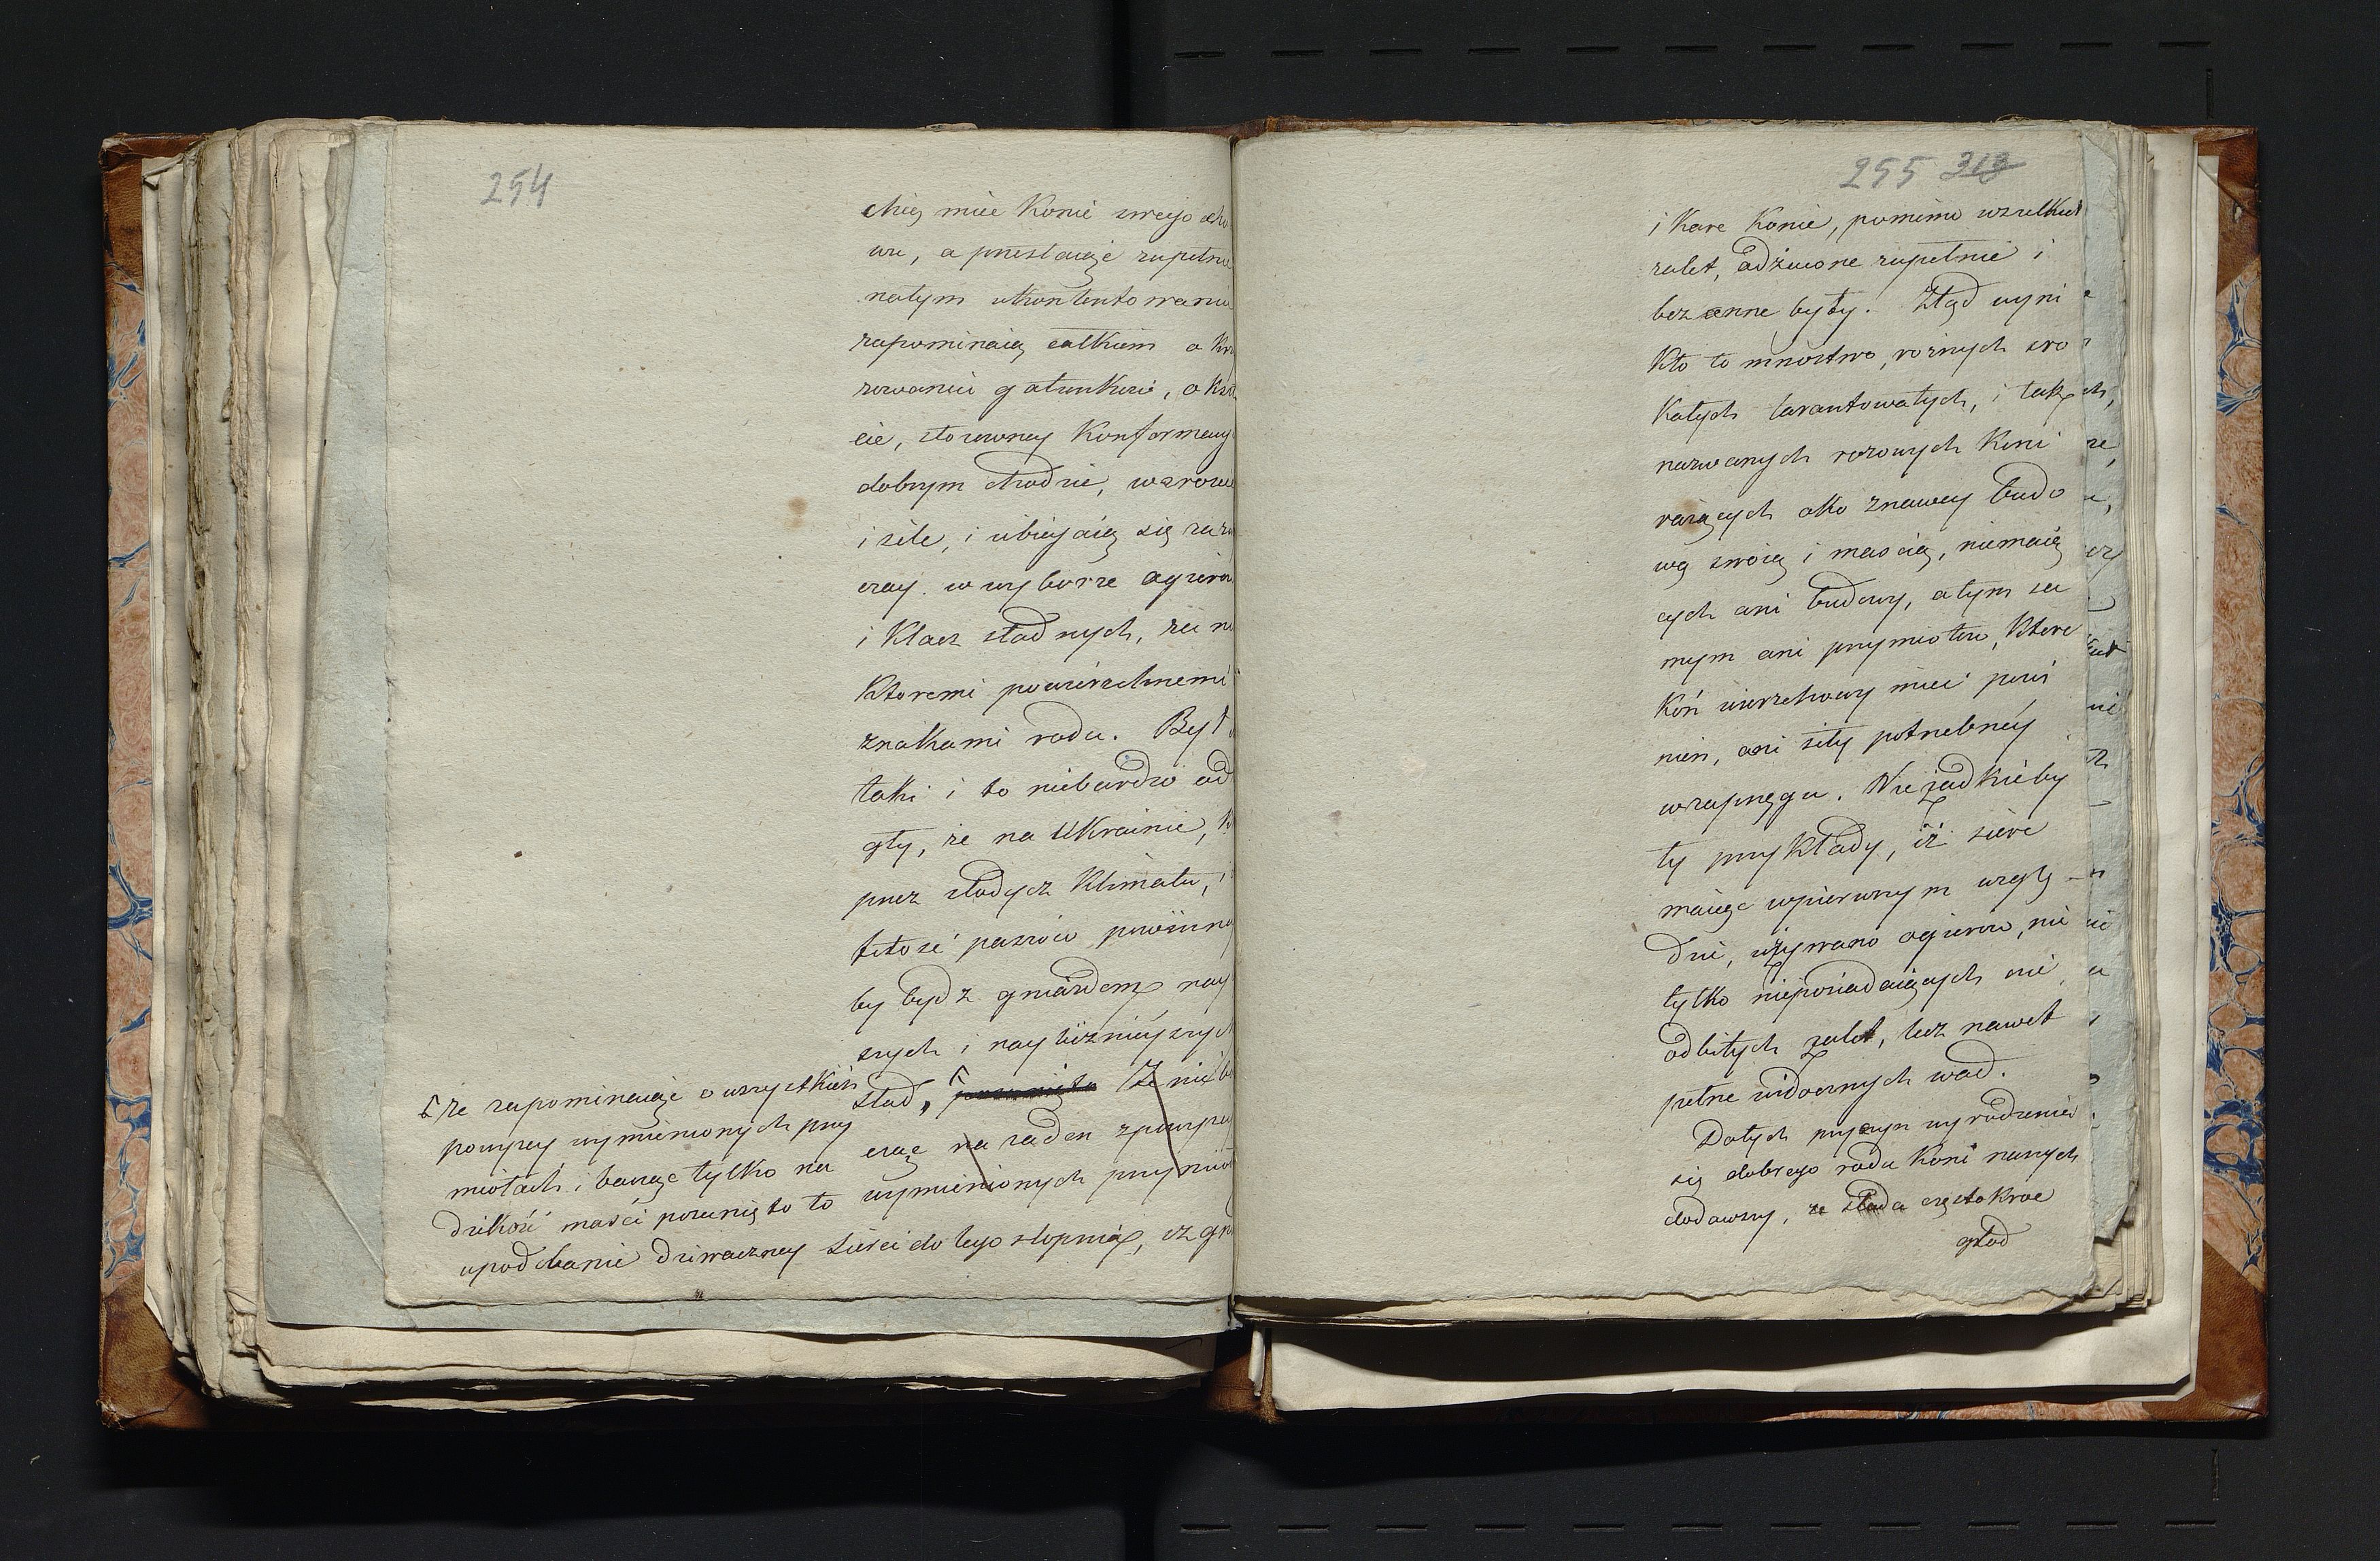 254
chcą mieć Konie swego cho
wu, a przestaiąc zupełnie
natym ukontentowaniu
zapominaią całkiem o Krzy
żowaniu gatunków, o Kszta
cie, stosowney Konformacyi
dobrym chodzie, wzroście
i sile, i ubiegaią się raczey
w wyborze ogierów
i Klacz stadnych, za nie
Ktoremi powierzchnemi
znakami rodu. Był
taki i to niebardzo od
gły, że na Ukrainie,
przez słodycz Klimatu, i
fitość paszów powinna
by bydź gniazdem nay
szych i nayliczniéyszych
stad,
cząc na żaden zpowyżey
wymienionych przymiot
⌈ że zapominaiąc o wszystkich
powyżey wymienionych przy
miotach i bacząc tylko na
dzikość maści posunięto to
upodobanie dziwaczney sierci do tego stopnia, iż gni
255 313
i Kare Konie, pomimo wszelkich
zalet, odżucone zupełnie i
bezcenne były. Ztąd wyni
Kło to mnostwo, rożnych sro
Katych tarantowatych, i tak
nazwanych rożowych Koni
rażących oko znawcy budo
wą swoią i maścią, niemaią
cych ani budowy, a tym sa
mym ani przymiotów, Ktore
Koń wierzchowy mieć powi
nien, ani siły potrzebnéy
wzaprzęgu. Nierzadkie by
ły przykłady, iż sierć
maiąc wpierwszym wzglę
dzie, używano ogierów, nie
tylko nieposiadaiących nie
odbitych zalet, lecz nawet
pełne widocznych wad.
Dotych przyczyn wyrodzenia
się dobrego rodu Koni naszych
dodawszy, że stada częstokroć
głod